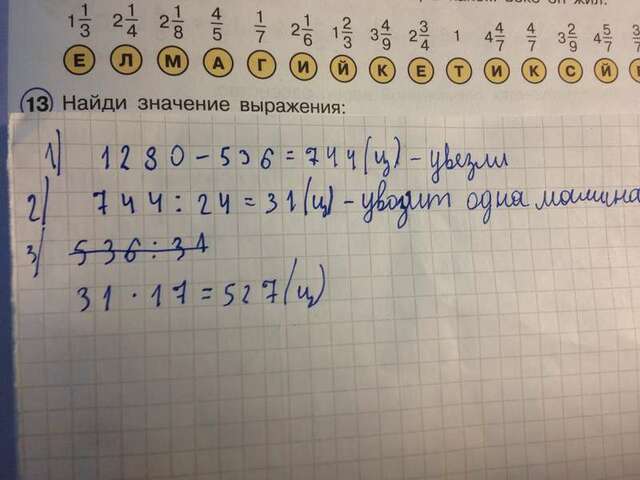 1 1/3 2 1/4 2 1/8 4/5 1/7 2 1/6 1 2/3 3 4/9 2 3/4 1 4 4/7 4/7 3 2/9 4 5/7
Е Л М А Г И Й К Е Т И К С Й
13 Найди значение выражения:
1) 1280 - 536 = 744 (ц) - увезли
2) 744 : 24 = 31 (ц) - увозит одна машина
3) 536 : 31
31 · 17 = 527 (ц)